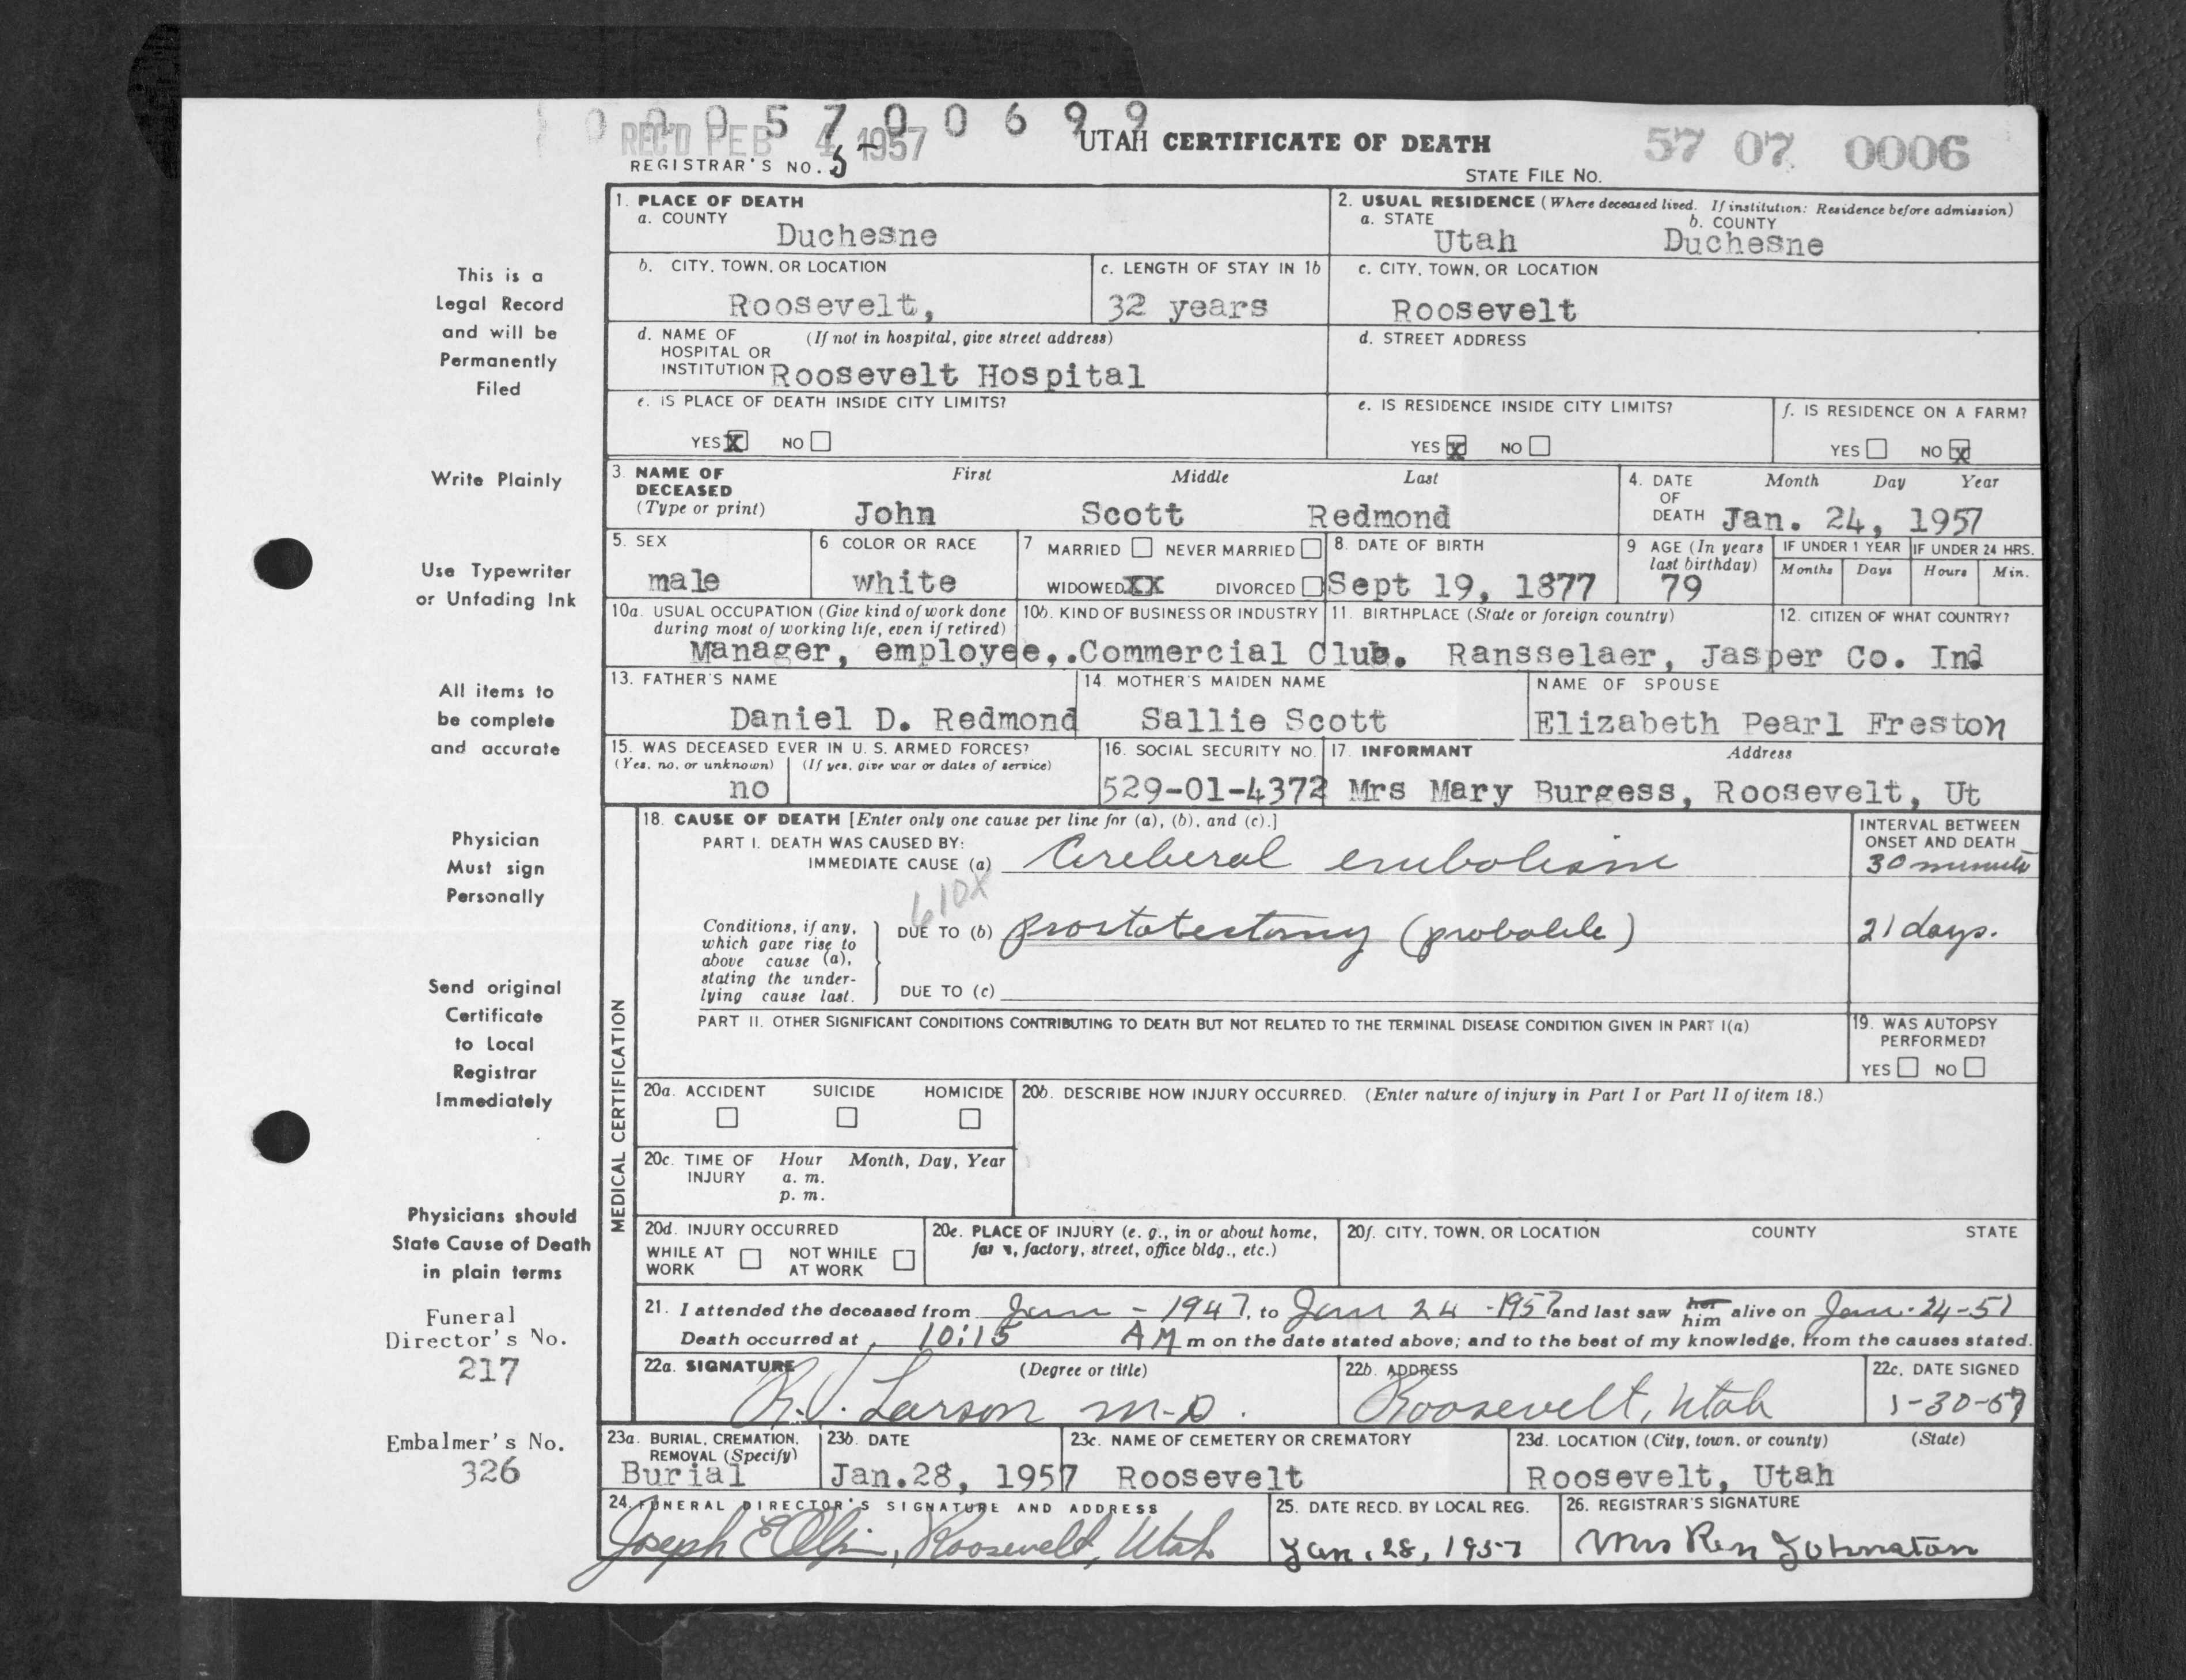 0005700699
REC'D FEB 4 1957
UTAH CERTIFICATE OF DEATH
57 07 0006
REGISTRAR'S NO. 5
STATE FILE NO.
1. PLACE OF DEATH
a. COUNTY
Duchesne
2. USUAL RESIDENCE (Where deceased lived. If institution: Residence before admission)
a. STATE b. COUNTY
Utah Duchesne
b. CITY, TOWN, OR LOCATION
Roosevelt,
c. LENGTH OF STAY IN 1b
32 years
c. CITY, TOWN, OR LOCATION
Roosevelt
d. NAME OF (If not in hospital, give street address)
HOSPITAL OR
INSTITUTION Roosevelt Hospital
d. STREET ADDRESS
e. IS PLACE OF DEATH INSIDE CITY LIMITS?
YES X NO
e. IS RESIDENCE INSIDE CITY LIMITS?
YES X NO
f. IS RESIDENCE ON A FARM?
YES NO X
3. NAME OF DECEASED
(Type or print)
First Middle Last
John Scott Redmond
4. DATE OF DEATH
Month Day Year
Jan. 24, 1957
5. SEX
male
6 COLOR OR RACE
white
7 MARRIED NEVER MARRIED
WIDOWED XX DIVORCED
8. DATE OF BIRTH
Sept 19, 1877
9 AGE (In years last birthday)
79
IF UNDER 1 YEAR IF UNDER 24 HRS.
Months Days Hours Min.
10a. USUAL OCCUPATION (Give kind of work done
during most of working life, even if retired)
10b. KIND OF BUSINESS OR INDUSTRY
11. BIRTHPLACE (State or foreign country)
12. CITIZEN OF WHAT COUNTRY?
Manager, employee,.Commercial Club. Ransselaer, Jasper Co. Ind
13. FATHER'S NAME
Daniel D. Redmond
14. MOTHER'S MAIDEN NAME
Sallie Scott
NAME OF SPOUSE
Elizabeth Pearl Freston
15. WAS DECEASED EVER IN U. S. ARMED FORCES?
(Yes, no, or unknown) (If yes, give war or dates of service)
no
16. SOCIAL SECURITY NO.
529-01-4372
17. INFORMANT Address
Mrs Mary Burgess, Roosevelt, Ut
MEDICAL CERTIFICATION
18. CAUSE OF DEATH [Enter only one cause per line for (a), (b), and (c).]
PART I. DEATH WAS CAUSED BY:
IMMEDIATE CAUSE (a) Cereberal embolism
INTERVAL BETWEEN
ONSET AND DEATH
30 minute
610X
Conditions, if any,
which gave rise to
above cause (a),
stating the under-
lying cause last.
DUE TO (b) prostatectomy (probable)
21 days.
DUE TO (c)
PART II. OTHER SIGNIFICANT CONDITIONS CONTRIBUTING TO DEATH BUT NOT RELATED TO THE TERMINAL DISEASE CONDITION GIVEN IN PART I(a)
19. WAS AUTOPSY
PERFORMED?
YES NO
20a. ACCIDENT SUICIDE HOMICIDE
20b. DESCRIBE HOW INJURY OCCURRED. (Enter nature of injury in Part I or Part II of item 18.)
20c. TIME OF INJURY
Hour Month, Day, Year
a. m.
p. m.
20d. INJURY OCCURRED
WHILE AT WORK NOT WHILE AT WORK
20e. PLACE OF INJURY (e. g., in or about home,
farm, factory, street, office bldg., etc.)
20f. CITY, TOWN, OR LOCATION COUNTY STATE
21. I attended the deceased from Jan - 1947, to Jan 24 -1957 and last saw her him alive on Jan. 24-57
Death occurred at 10:15 AM m on the date stated above; and to the best of my knowledge, from the causes stated.
22a. SIGNATURE (Degree or title)
R.V. Larson M-D.
22b. ADDRESS
Roosevelt, Utah
22c. DATE SIGNED
1-30-57
23a. BURIAL, CREMATION,
REMOVAL (Specify)
Burial
23b. DATE
Jan.28, 1957
23c. NAME OF CEMETERY OR CREMATORY
Roosevelt
23d. LOCATION (City, town, or county) (State)
Roosevelt, Utah
24. FUNERAL DIRECTOR'S SIGNATURE AND ADDRESS
Joseph E Olpin, Roosevelt, Utah
25. DATE RECD. BY LOCAL REG.
Jan. 28, 1957
26. REGISTRAR'S SIGNATURE
Mrs Ren Johnston
This is a
Legal Record
and will be
Permanently
Filed
Write Plainly
Use Typewriter
or Unfading Ink
All items to
be complete
and accurate
Physician
Must sign
Personally
Send original
Certificate
to Local
Registrar
Immediately
Physicians should
State Cause of Death
in plain terms
Funeral
Director's No.
217
Embalmer's No.
326